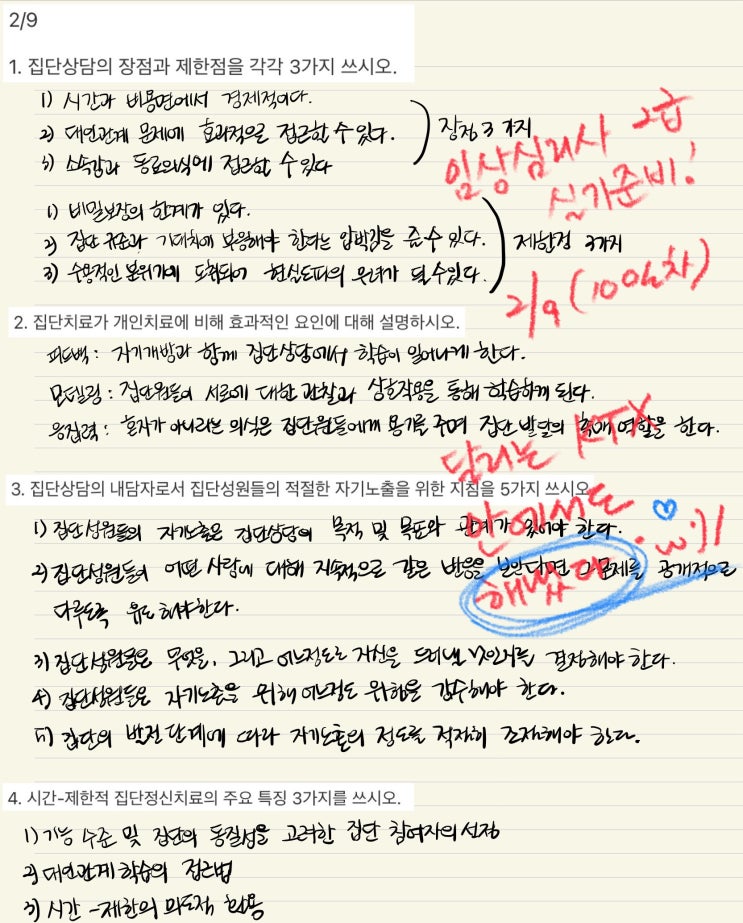 2/9
1. 집단상담의 장점과 제한점을 각각 3가지 쓰시오.
1) 시간과 비용면에서 경제적이다.
2) 대인관계 문제에 효과적으로 접근할 수 있다.
3) 소속감과 동료의식에 접근할 수 있다
장점 3가지
1) 비밀보장의 한계가 있다.
2) 집단 규준과 기대치에 부응해야 한다는 압박감을 줄 수 있다.
3) 수용적인 분위기에 도취되어 현실도피의 우려가 될 수 있다.
제한점 3가지
임상심리사 2급
실기준비!
2/9 (100일차)
2. 집단치료가 개인치료에 비해 효과적인 요인에 대해 설명하시오.
피드백 : 자기개방과 함께 집단상담에서 학습이 일어나게 한다.
모델링 : 집단원들이 서로에 대한 관찰과 상호작용을 통해 학습하게 된다.
응집력 : 혼자가 아니라는 의식은 집단원들에게 용기를 주며 집단 발달의 역할을 한다.
달리는 KTX
안에서도
해냈다
3. 집단상담의 내담자로서 집단성원들의 적절한 자기노출을 위한 지침을 5가지 쓰시오
1) 집단성원들의 자기노출은 집단상담의 목적 및 목표와 관계가 있어야 한다.
2) 집단성원들이 어떤 사람에 대해 지속적으로 같은 반응을 보인다면 그 문제를 공개적으로
다루도록 유도해야한다.
3) 집단성원들은 무엇을, 그리고 어느정도로 자신을 드러낼 것인지를 결정해야 한다.
4) 집단성원들은 자기노출을 위해 어느정도 위험을 감수해야 한다.
5) 집단의 발전단계에 따라 자기노출의 정도를 적절히 조절해야 한다.
4. 시간-제한적 집단정신치료의 주요 특징 3가지를 쓰시오.
1) 기능 수준 및 집단의 동질성을 고려한 집단 참여자의 선정
2) 대인관계 학습의 접근법
3) 시간-제한의 의도적 활용